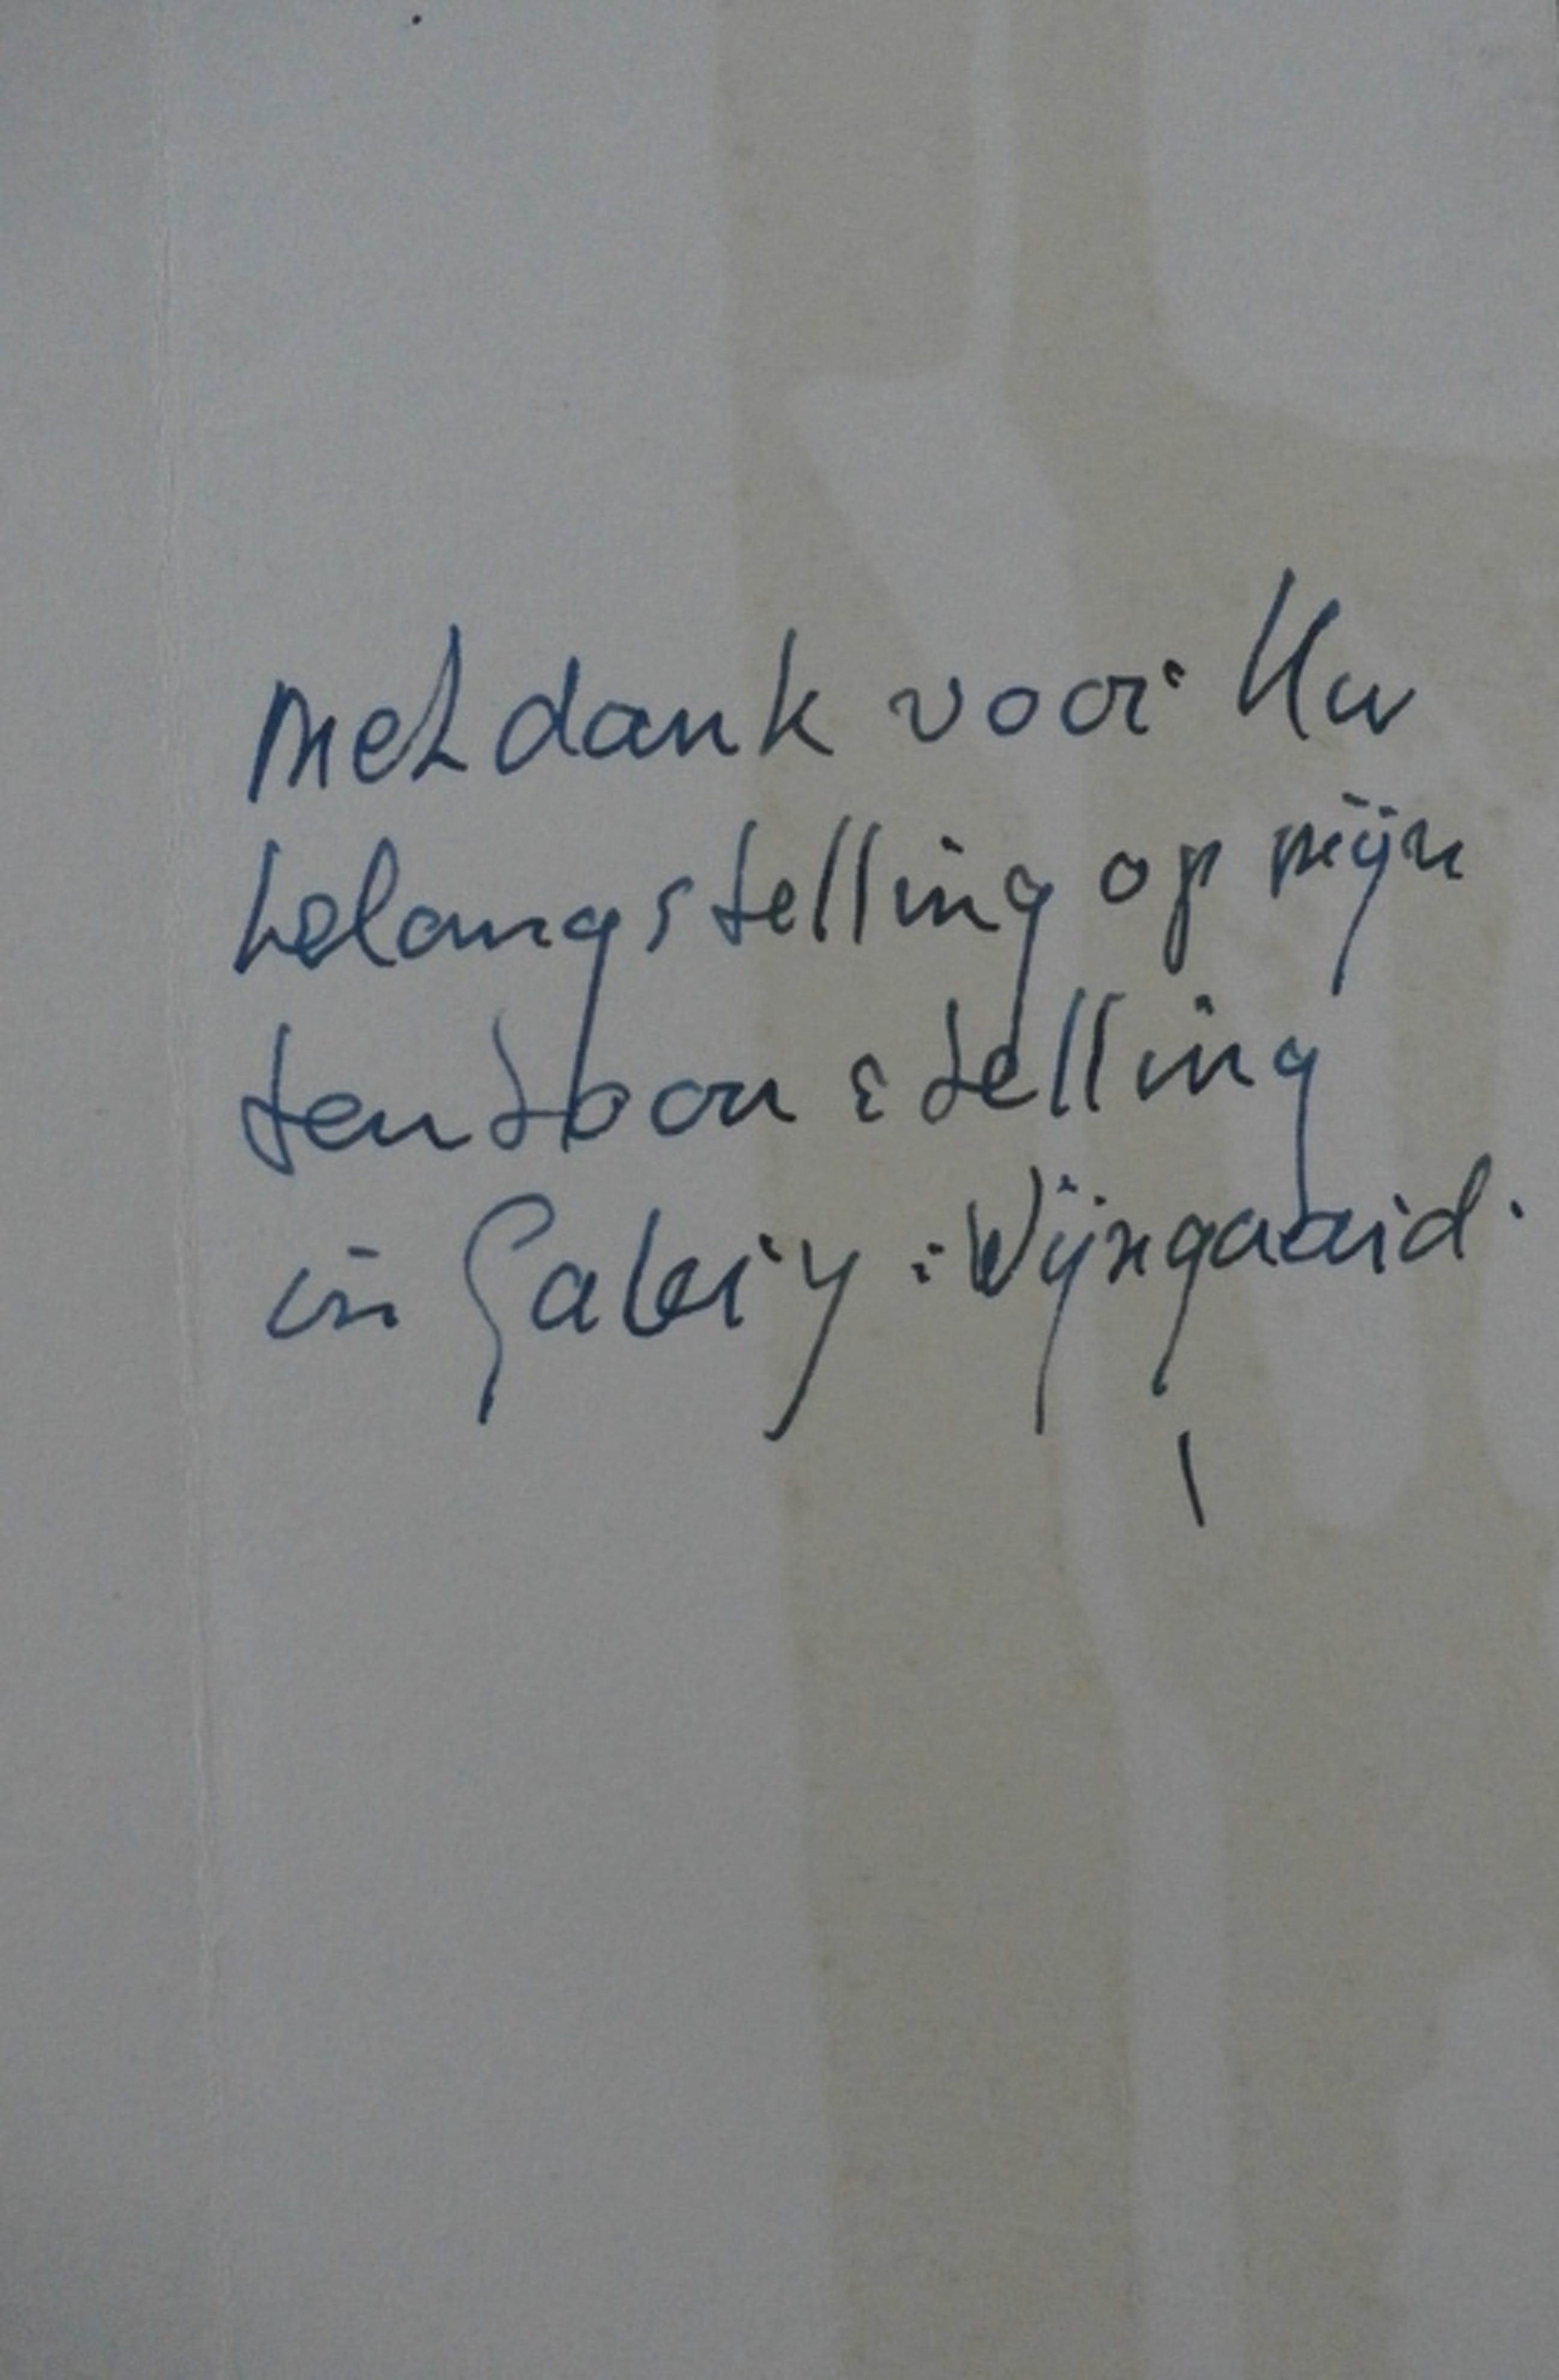 met dank voor Uw
belangstelling op mijn
tentoonstelling
in Galery : Wijngaard.